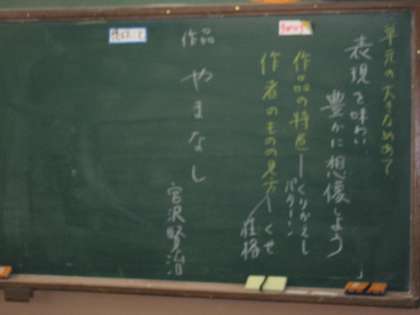 単元の大きなめあて
表現を味わい
豊かに想像しよう」
作品の特色―くりかえし
パターン
作者のものの見方―くせ
性格
作品
やまなし
宮沢賢治